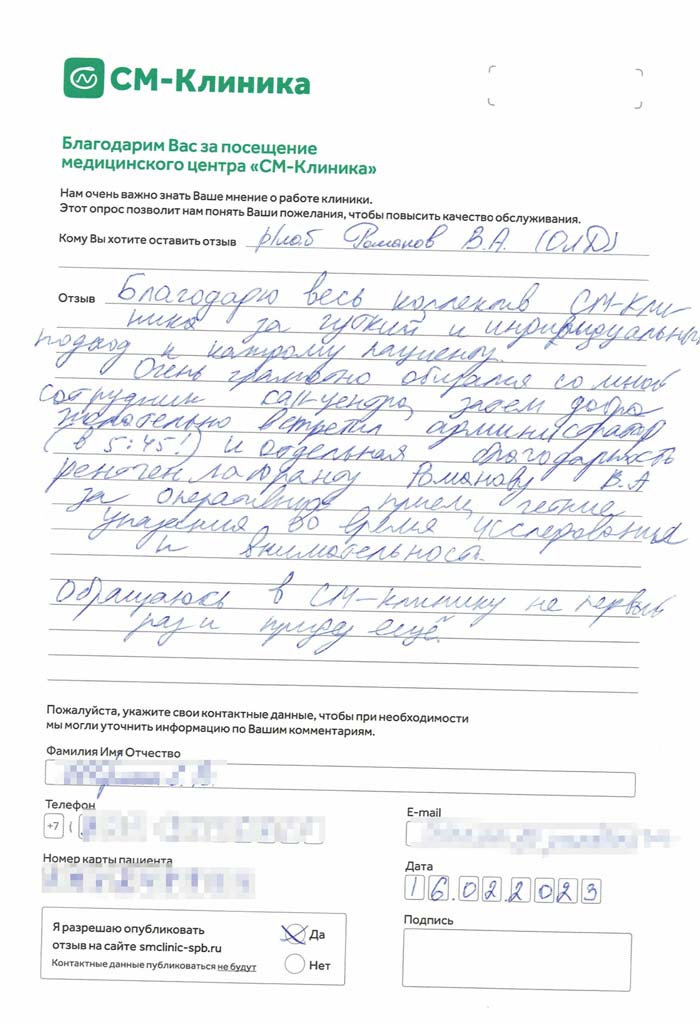 СМ-Клиника
Благодарим Вас за посещение
медицинского центра «СМ-Клиника»
Нам очень важно знать Ваше мнение о работе клиники.
Этот опрос позволит нам понять Ваши пожелания, чтобы повысить качество обслуживания.
Кому Вы хотите оставить отзыв р/лаб Романов В.А. (ОЛД)
Отзыв Благодарю весь коллектив СМ-Кли-
ника за чуткий и индивидуальный
подход к каждому пациенту.
Очень грамотно общался со мной
сотрудник call-центра, затем добро
желательно встретил администратор
(в 5:45!) и отдельная благодарность
рентгенлаборанту Романову В.А
за оперативный прием, четкие
указания во время исследования
и внимательность.
Обращаюсь в СМ-клинику не первый
раз и приду ещё.
Пожалуйста, укажите свои контактные данные, чтобы при необходимости
мы могли уточнить информацию по Вашим комментариям.
Фамилия Имя Отчество
Телефон
+7 (
E-mail
Номер карты пациента
Дата
16.02.2023
Я разрешаю опубликовать
отзыв на сайте smclinic-spb.ru
Контактные данные публиковаться не будут
Да
Нет
Подпись